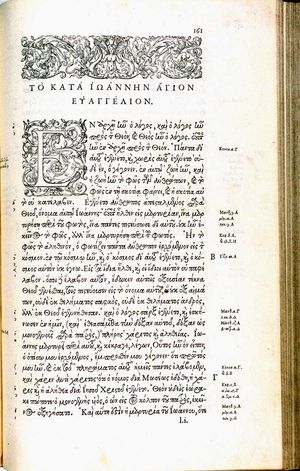 161
ΤΟ ΚΑΤΑ ΙΩΑΝΝΗΝ ΑΓΙΟΝ
ΕΥΑΓΓΕΛΙΟΝ.
ΕΝ ἀρχῇ ἦν ὁ λόγος, καὶ ὁ λόγος ἦν
πρὸς τὸν Θεὸν, καὶ Θεὸς ἦν ὁ λόγος. οὗτος
ἦν ἐν ἀρχῇ πρὸς τὸν Θεόν. Πάντα δι'
αὐτοῦ ἐγένετο, καὶ χωρὶς αὐτοῦ ἐγένετο οὐδὲ
ἓν, ὃ γέγονεν. ἐν αὐτῷ ζωὴ ἦν, καὶ ἡ
ζωὴ ἦν τὸ φῶς τῶν ἀνθρώπων, καὶ τὸ
φῶς ἐν τῇ σκοτίᾳ φαίνει, καὶ ἡ σκοτία αὐ
τὸ οὐ κατέλαβεν. Ἐγένετο ἄνθρωπος ἀπεσταλμένος παρὰ
Θεοῦ, ὄνομα αὐτῷ Ἰωάννης· οὗτος ἦλθεν εἰς μαρτυρίαν, ἵνα
μαρτυρήσῃ περὶ τοῦ φωτὸς, ἵνα πάντες πιστεύσωσι δι' αὐτοῦ. οὐκ ἦν ἐ
κεῖνος τὸ φῶς, ἀλλ' ἵνα μαρτυρήσῃ περὶ τοῦ φωτός. Ἦν τὸ
φῶς τὸ ἀληθινὸν, ὃ φωτίζει πάντα ἄνθρωπον ἐρχόμενον εἰς τὸν
κόσμον. ἐν τῷ κόσμῳ ἦν, καὶ ὁ κόσμος δι' αὐτοῦ ἐγένετο, καὶ ὁ κό
σμος αὐτὸν οὐκ ἔγνω. Εἰς τὰ ἴδια ἦλθε, καὶ οἱ ἴδιοι αὐτὸν οὐ παρέ
λαβον. ὅσοι δὲ ἔλαβον αὐτὸν, ἔδωκεν αὐτοῖς ἐξουσίαν τέκνα
Θεοῦ γενέσθαι, τοῖς πιστεύουσιν εἰς τὸ ὄνομα αὐτοῦ. οἳ οὐκ ἐξ αἱμά
των, οὐδὲ ἐκ θελήματος σαρκὸς, οὐδὲ ἐκ θελήματος ἀνδρὸς,
ἀλλ' ἐκ Θεοῦ ἐγεννήθησαν. Καὶ ὁ λόγος σὰρξ ἐγένετο, καὶ ἐσκή
νωσεν ἐν ἡμῖν, καὶ ἐθεασάμεθα τὴν δόξαν αὐτοῦ, δόξαν ὡς
μονογενοῦς παρὰ πατρὸς, πλήρης χάριτος καὶ ἀληθείας. Ἰωάν
νης μαρτυρεῖ περὶ αὐτοῦ, καὶ κέκραγε, λέγων, Οὗτος ἦν ὃν εἶπον,
ὁ ὀπίσω μου ἐρχόμενος, ἔμπροσθέν μου γέγονεν· ὅτι πρῶτός
μου ἦν. καὶ ἐκ τοῦ πληρώματος αὐτοῦ ἡμεῖς πάντες ἐλάβομεν,
καὶ χάριν ἀντὶ χάριτος· ὅτι ὁ νόμος διὰ Μωσέως ἐδόθη, ἡ χάρις
καὶ ἡ ἀλήθεια διὰ Ἰησοῦ Χριστοῦ ἐγένετο. Θεὸν οὐδεὶς ἑώρακε
πώποτε· ὁ μονογενὴς υἱὸς, ὁ ὢν εἰς τὸν κόλπον τοῦ πατρὸς, ἐκεῖ
νος ἐξηγήσατο. Καὶ αὕτη ἐστὶν ἡ μαρτυρία τοῦ Ἰωάννου, ὅτε
Β
Γ
l.i.